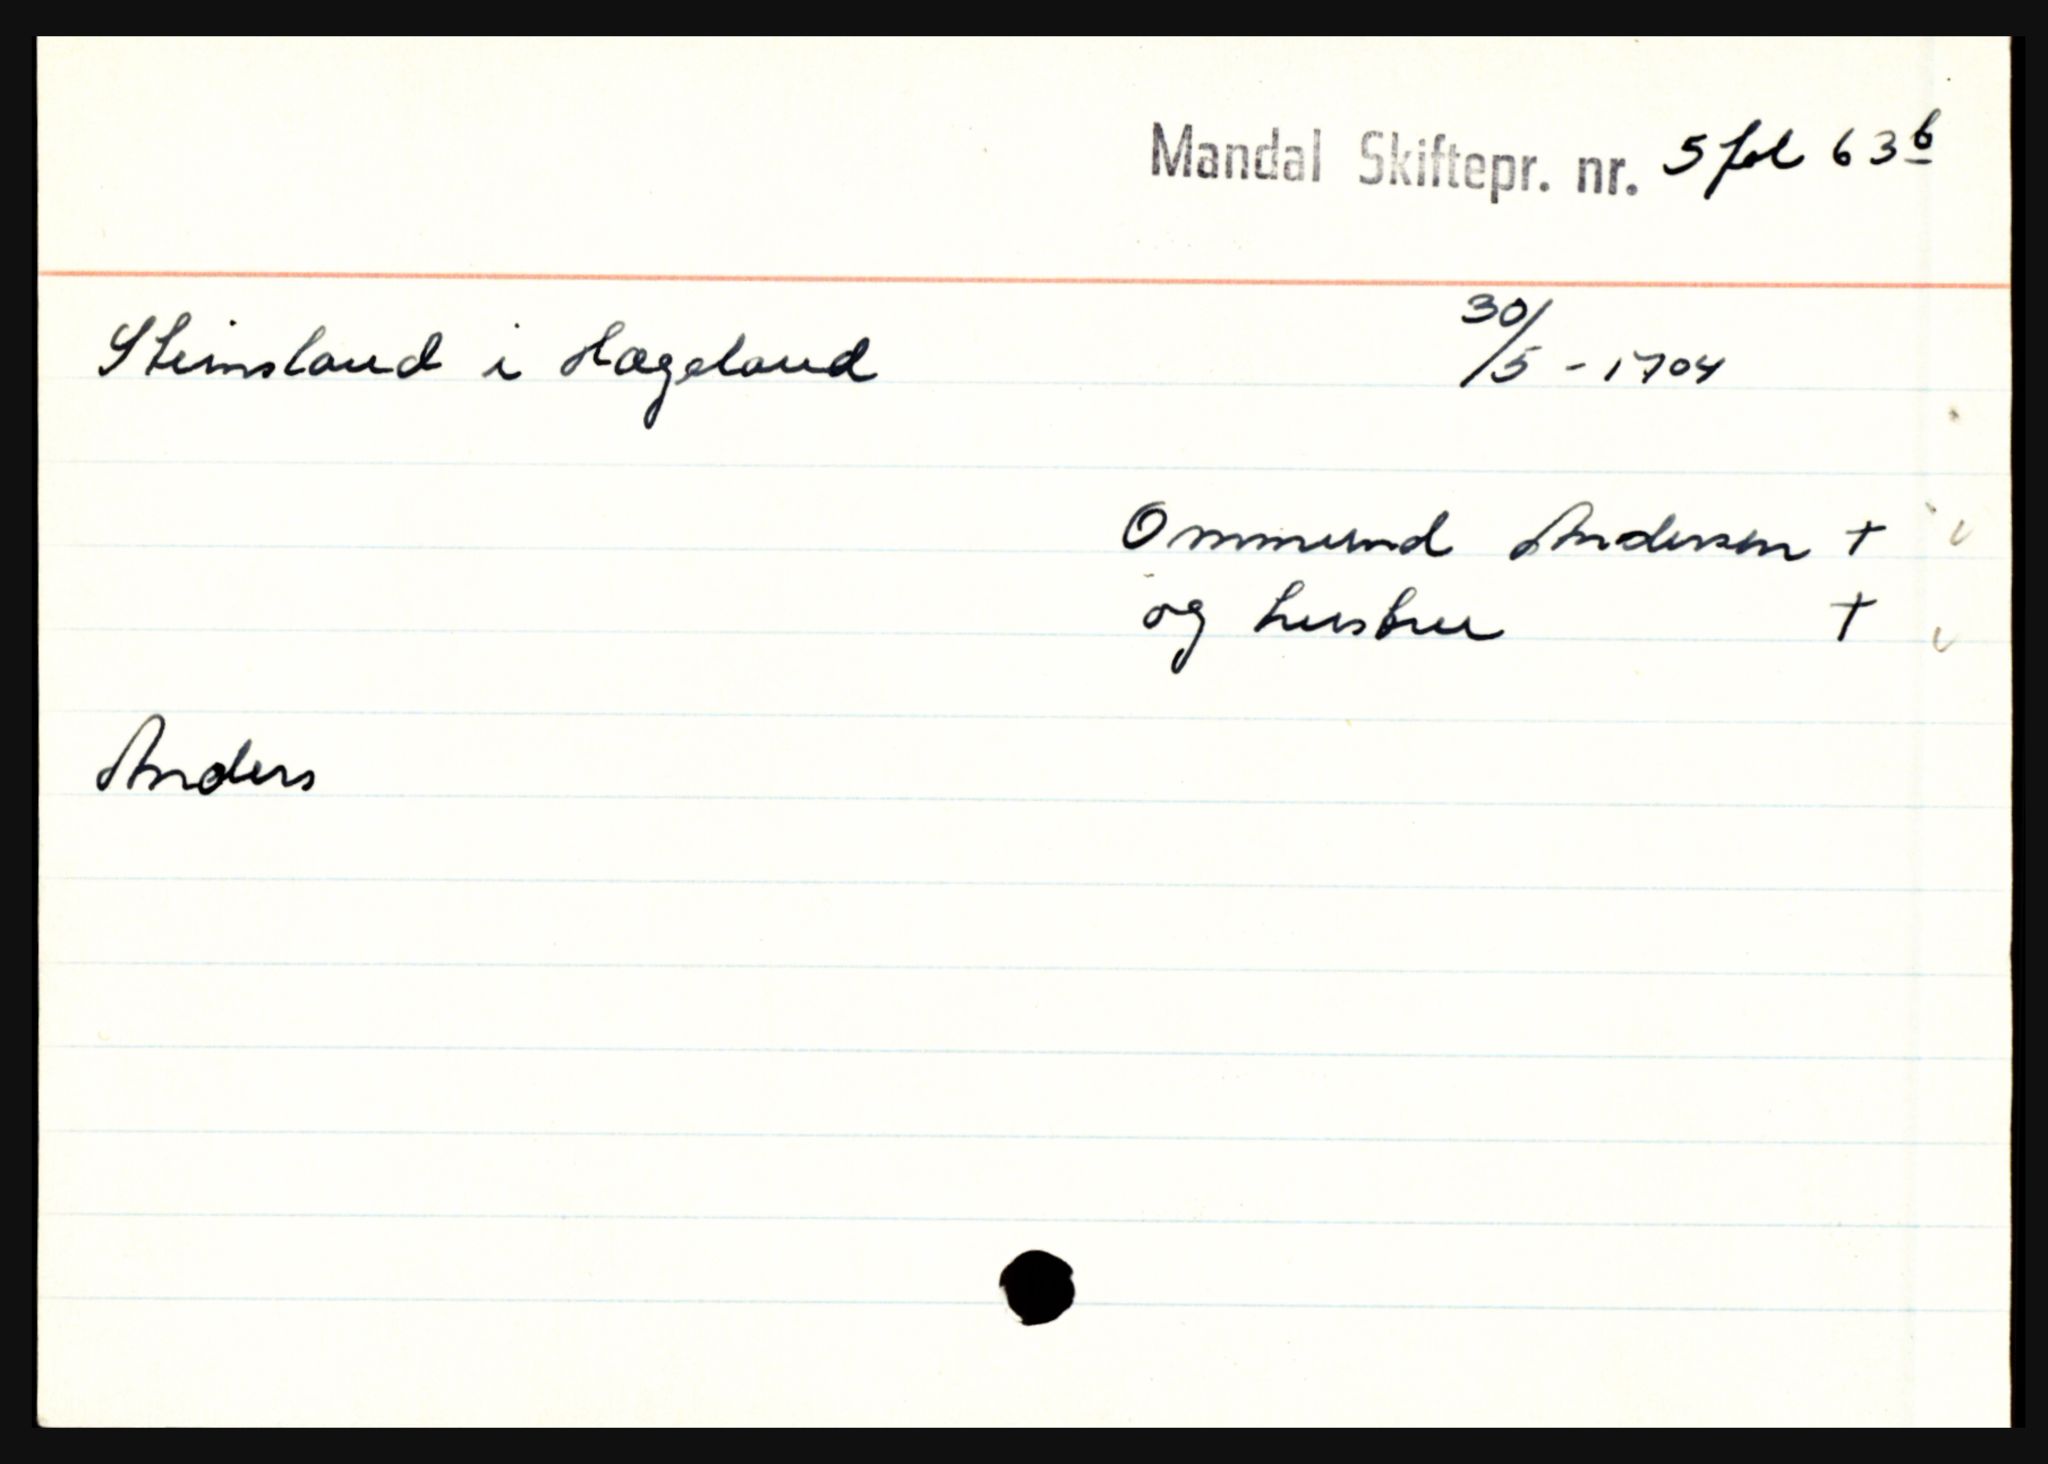 Mandal Skiftepr. nr. 5 fol 63b
Steinsland i Hægeland 30/5 - 1704
Ommund Andersen †
og hustru †
Anders